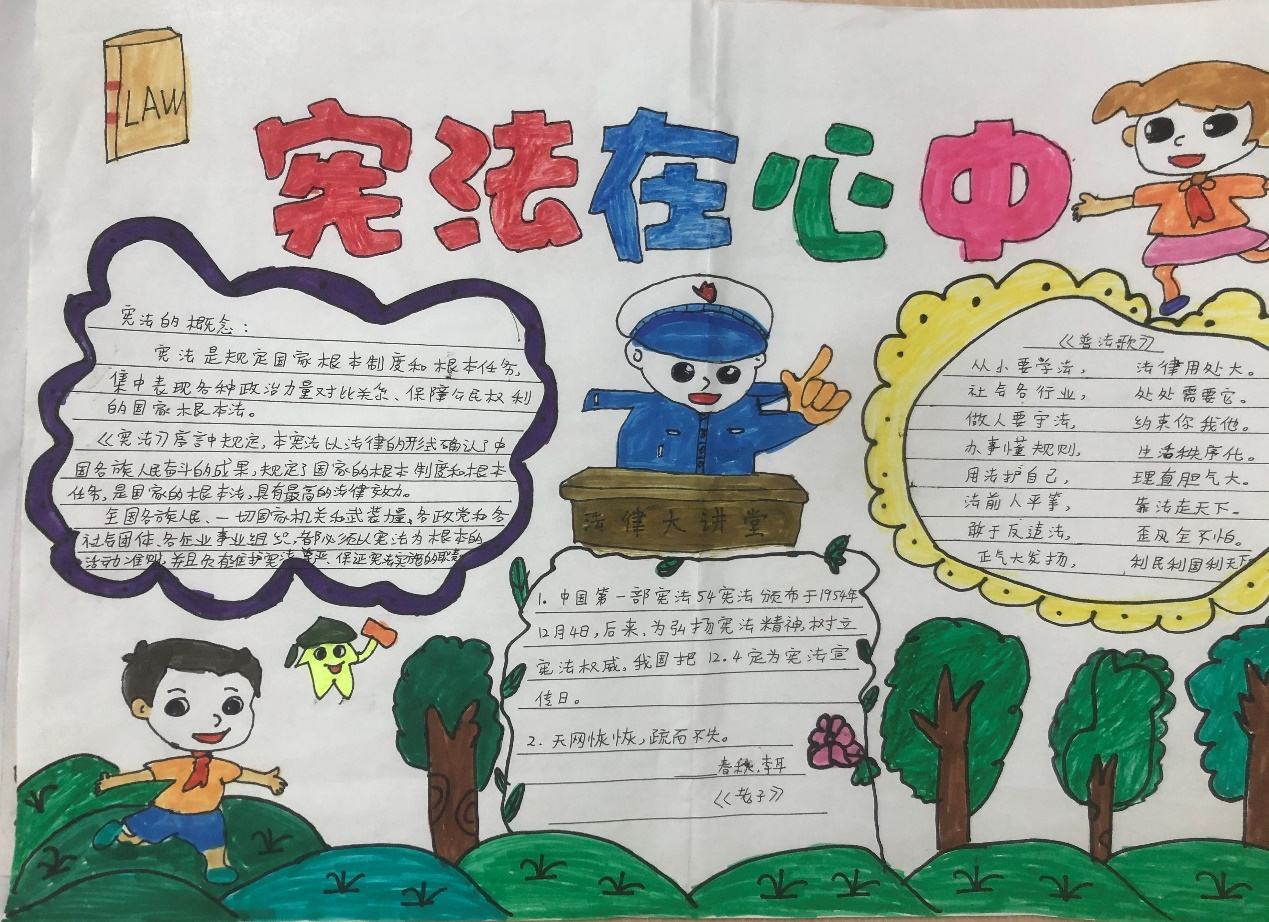 LAW
宪法在心中
宪法的概念：
宪法是规定国家根本制度和根本任务，
集中表现各种政治力量对比关系、保障公民权利
的国家根本法。
《宪法》序言中规定，本宪法以法律的形式确认了中
国各族人民奋斗的成果，规定了国家的根本制度和根本
任务，是国家的根本法，具有最高的法律效力。
全国各族人民、一切国家机关和武装力量、各政党和各
社会团体、各企业事业组织，都必须以宪法为根本的
活动准则，并且负有维护宪法尊严、保证宪法实施的职责
法律大讲堂
1. 中国第一部宪法54宪法颁布于1954年
12月4日，后来，为弘扬宪法精神，树立
宪法权威。我国把 12.4定为宪法宣
传日。
2. 天网恢恢，疏而不失。
春秋.李耳
《老子》
《普法歌》
从小要学法， 法律用处大。
社会各行业， 处处需要它。
做人要守法， 约束你我他。
办事懂规则， 生活秩序化。
用法护自己， 理直胆气大。
法前人平等， 靠法走天下。
敢于反违法， 歪风全不怕。
正气大发扬， 利民利国利天下